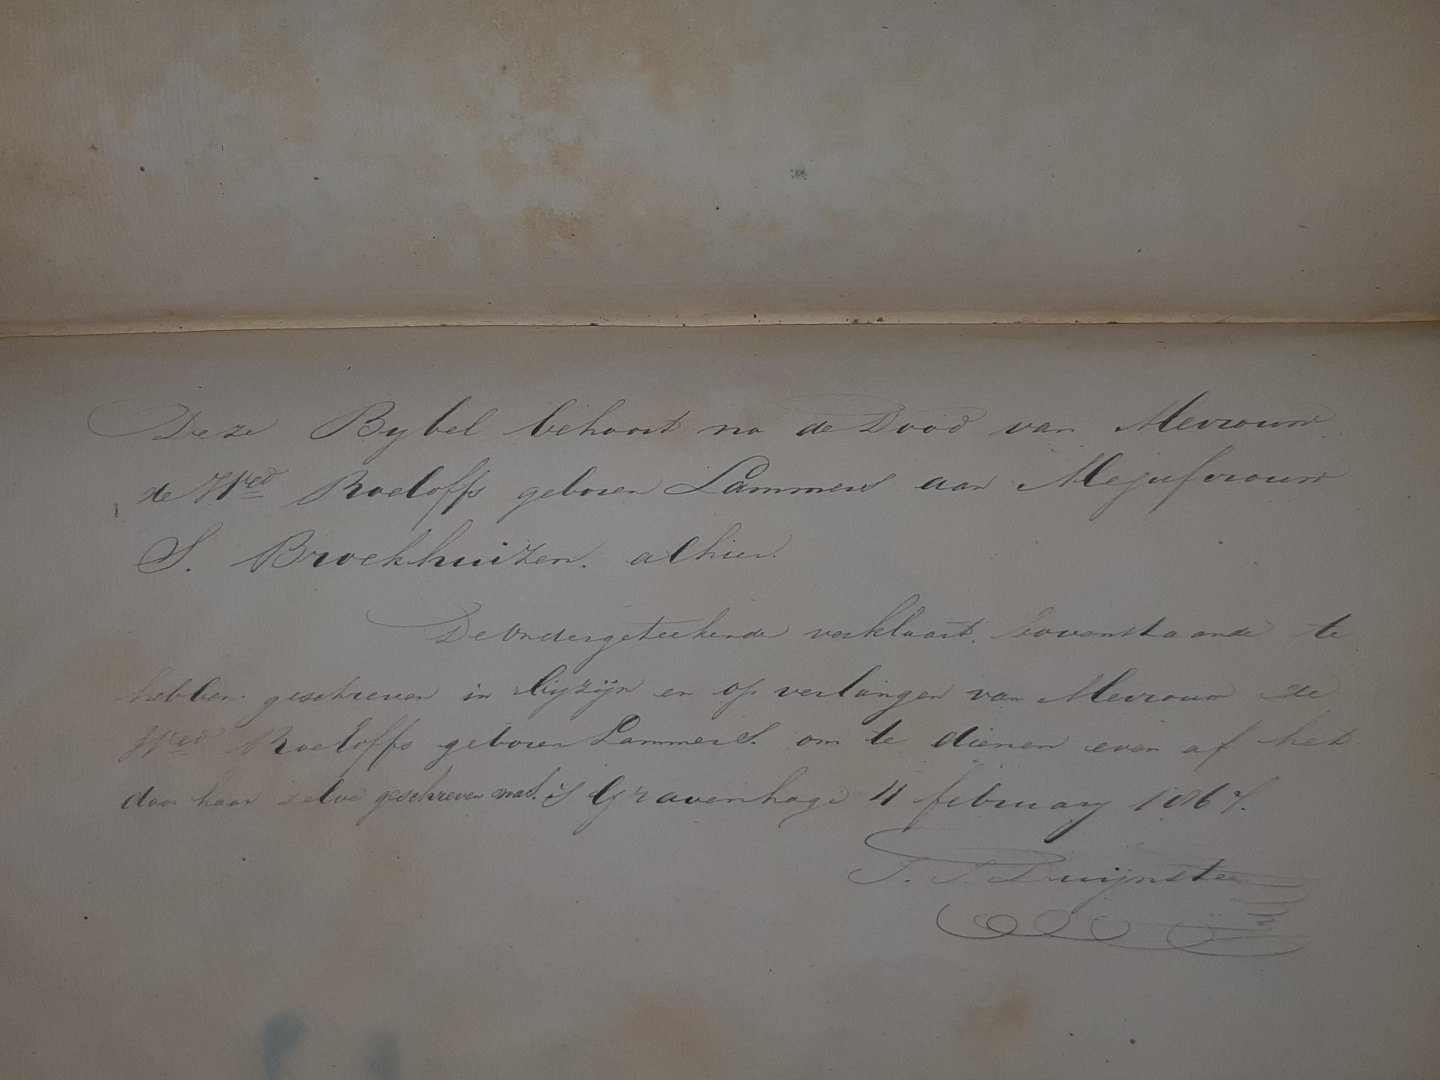 Deze Bybel behoort na de Dood van Mevrouw
de Wed Roeloffs geboren Lammers aan Mejufvrouw
S. Broekhuizen. alhier.
De Ondergeteekende verklaart bovenstaande te
hebben geschreven in byzijn en op verlangen van Mevrouw de
Wed Roeloffs geboren Lammers. om te dienen even af het
door haar zelve geschreven was. 's Gravenhage 4 february 1867.
Duijnstee